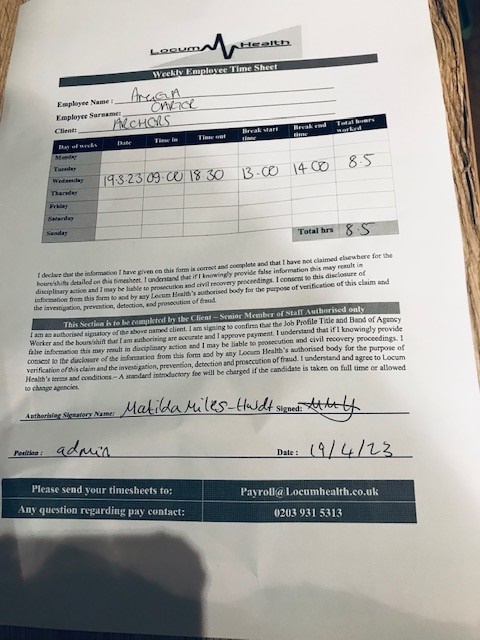 Locum Health
Weekly Employee Time Sheet
Employee Name :
Employee Surname: CARTER
Client: ARCHERS
Day of weeks Date Time in Time out Break start time Break end time Total hours worked
Monday
Tuesday
Wednesday 19.3.23 09.00 18 30 13.00 14 00 8.5
Thursday
Friday
Saturday
Sunday
Total hrs 8.5
I declare that the information I have given on this form is correct and complete and that I have not claimed elsewhere for the
hours/shifts detailed on this timesheet. I understand that if I knowingly provide false information this may result in
disciplinary action and I may be liable to prosecution and civil recovery proceedings. I consent to this disclosure of
information from this form to and by any Locum Health's authorised body for the purpose of verification of this claim and
the investigation, prevention, detection, and prosecution of fraud.
This Section is to be completed by the Client – Senior Member of Staff Authorised only
I am an authorised signatory of the above named client. I am signing to confirm that the Job Profile Title and Band of Agency
Worker and the hours/shift that I am authorizing are accurate and I approve payment. I understand that if I knowingly provide
false information this may result in disciplinary action and I may be liable to prosecution and civil recovery proceedings. I
consent to the disclosure of the information from this form and by any Locum Health's authorised body for the purpose of
verification of this claim and the investigation, prevention, detection and prosecution of fraud. I understand and agree to Locum
Health's terms and conditions – A standard introductory fee will be charged if the candidate is taken on full time or allowed
to change agencies.
Authorising Signatory Name: Matilda Miles-Hardt Signed:
Position : admin Date : 19/4/23
Please send your timesheets to: Payroll@Locumhealth.co.uk
Any question regarding pay contact: 0203 931 5313